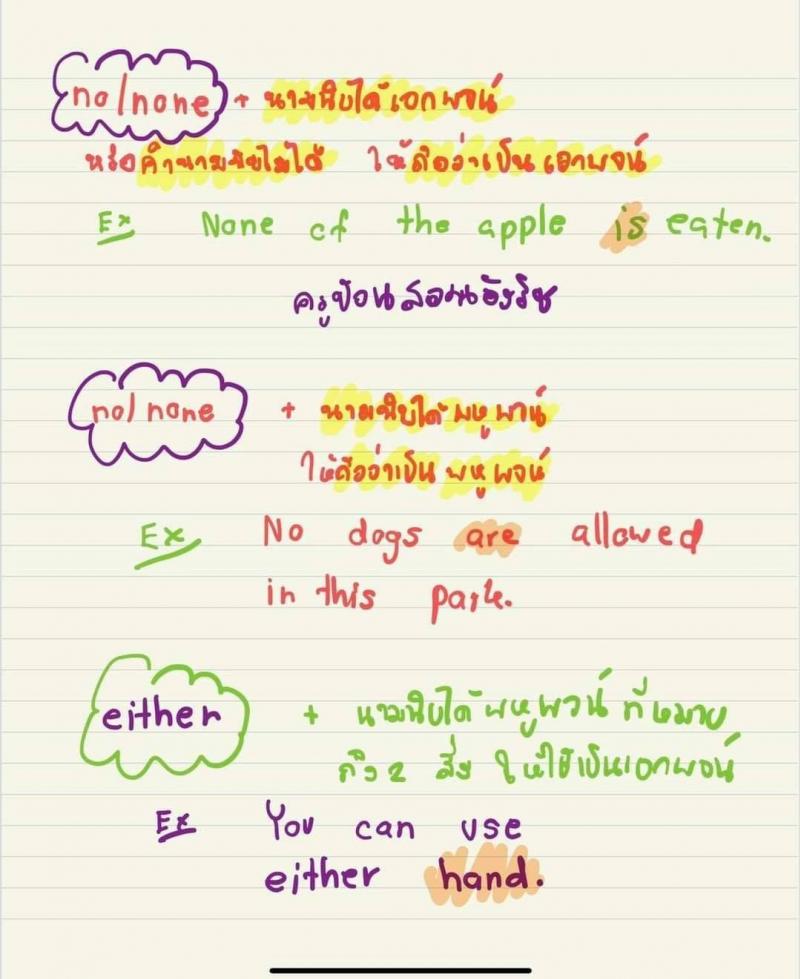 no/none + นามนับได้เอกพจน์
หรือคำนามนับไม่ได้ ให้ถือว่าเป็นเอกพจน์
Ex None of the apple is eaten.
ครูป้อนสอนอังกริช
no/none + นามนับได้พหูพจน์
ให้ถือว่าเป็นพหูพจน์
Ex No dogs are allowed
in this park.
either + นามนับได้พหูพจน์ ที่หมาย
ถึง 2 สิ่ง ให้ใช้เป็นเอกพจน์
Ex You can use
either hand.